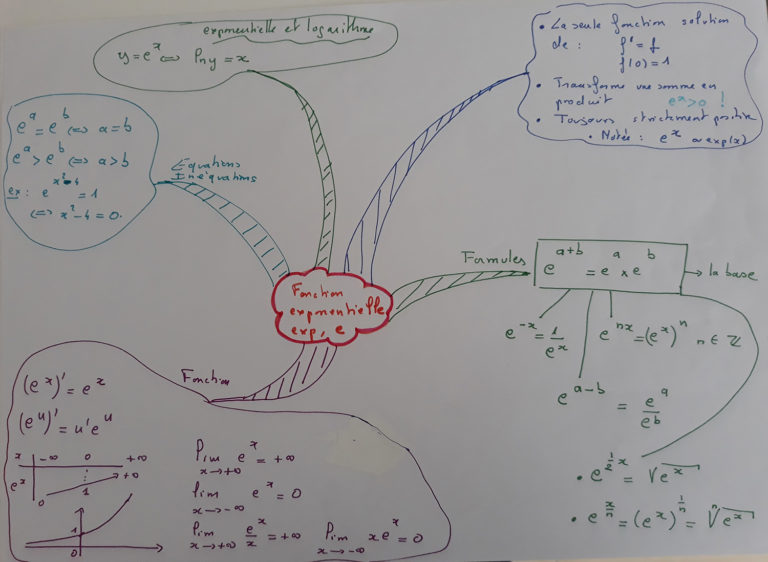 exponentielle et logarithme
y = eˣ ⟺ ln y = x
• La seule fonction solution
de : f' = f
f(0) = 1
• Transforme une somme en
produit eˣ > 0 !
• Toujours strictement positive
• Notée : eˣ ou exp(x)
eᵃ = eᵇ ⟺ a = b
eᵃ > eᵇ ⟺ a > b
ex : e^(x²-4) = 1
⟺ x² - 4 = 0.
Equations
Inéquations
Formules
e^(a+b) = eᵃ × eᵇ
→ la base
e^(-x) = 1/eˣ
e^(nx) = (eˣ)ⁿ n ∈ ℤ
e^(a-b) = eᵃ/eᵇ
• e^(½x) = √eˣ
• e^(x/n) = (eˣ)^(1/n) = ⁿ√eˣ
Fonction
exponentielle
exp, e
Fonction
(eˣ)' = eˣ
(eᵘ)' = u'eᵘ
x -∞ 0 +∞
eˣ 0 1 +∞
1
0
lim x→+∞ eˣ = +∞
lim x→-∞ eˣ = 0
lim x→+∞ eˣ/x = +∞
lim x→-∞ xeˣ = 0